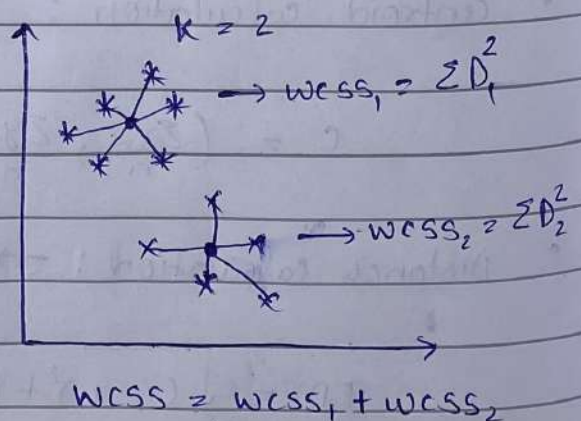 K = 2
→ WCSS₁ = ΣD₁²
→ WCSS₂ = ΣD₂²
WCSS = WCSS₁ + WCSS₂